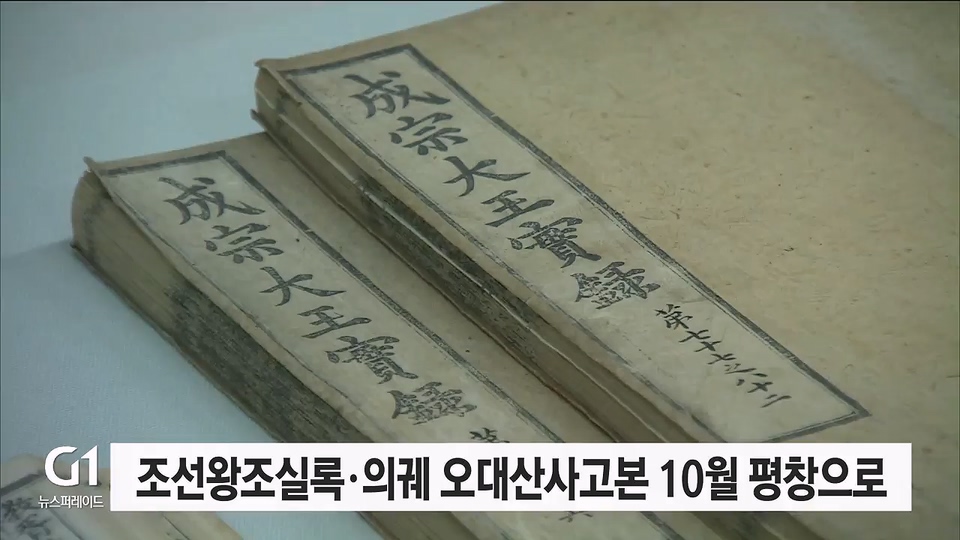 成宗大王實録
第七十七之八十二
成宗大王實録
第
G1
뉴스퍼레이드
조선왕조실록·의궤 오대산사고본 10월 평창으로